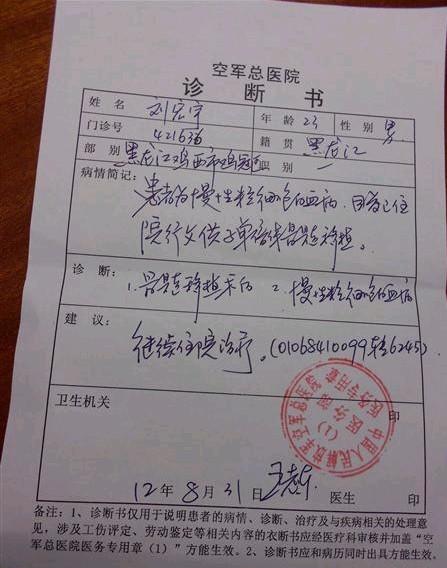 空军总医院
诊 断 书
姓 名 刘宏宇 年 龄 23 性 别 男
门诊号 421636 籍 贯 黑龙江
部 别 黑龙江鸡西市鸡冠区 职 别
病情简记: 患者为慢性粒细胞白血病,目前已住
院行父供子单倍体骨髓移植。
诊 断: 1.骨髓移植术后 2.慢性粒细胞白血病
建 议: 继续住院治疗。(01068410099转6245)
卫生机关 印
中国人民解放军空军总医院
医务部
(1)
医务专用章
12 年 8 月 31 日 医生 印
备注:1、诊断书仅用于说明患者的病情、诊断、治疗及与疾病相关的处理意
见,涉及工伤评定、劳动鉴定等相关内容的衣断书应经医疗科审核并加盖“空
军总医院医务专用章(1)”方能生效。2、诊断书应和病历同时出具方能生效。